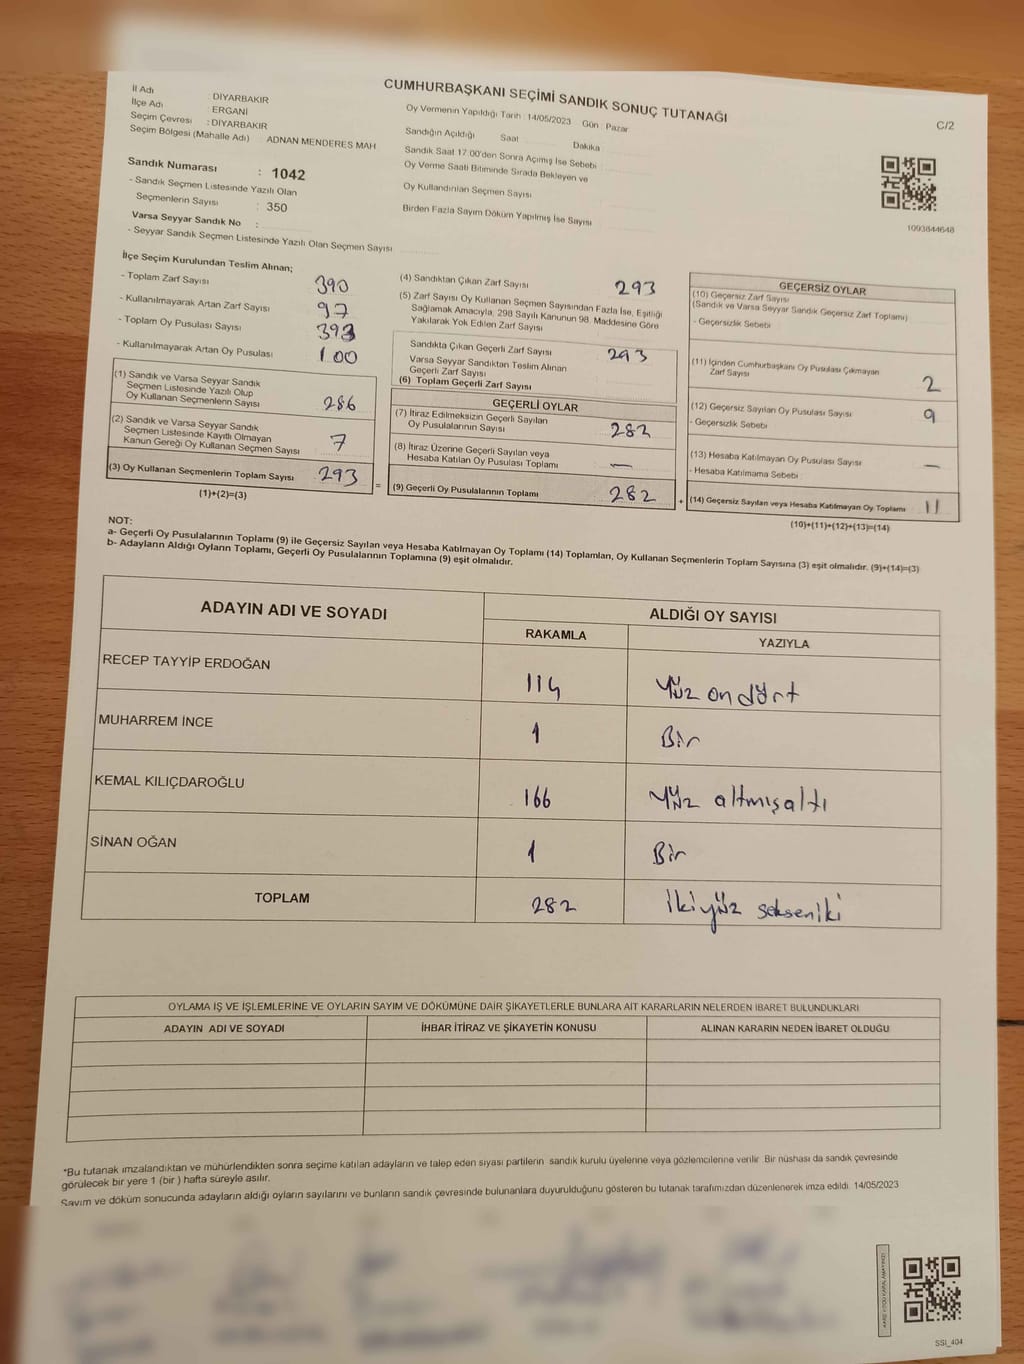 CUMHURBAŞKANI SEÇİMİ SANDIK SONUÇ TUTANAĞI
C/2
İl Adı : DİYARBAKIR
İlçe Adı : ERGANİ
Seçim Çevresi : DİYARBAKIR
Seçim Bölgesi (Mahalle Adı) ADNAN MENDERES MAH
Sandık Numarası : 1042
- Sandık Seçmen Listesinde Yazılı Olan
Seçmenlerin Sayısı : 350
Varsa Seyyar Sandık No :
- Seyyar Sandık Seçmen Listesinde Yazılı Olan Seçmen Sayısı
Oy Vermenin Yapıldığı Tarih : 14/05/2023 Gün : Pazar
Sandığın Açıldığı Saat Dakika
Sandık Saat 17.00'den Sonra Açımış İse Sebebi
Oy Verme Saati Bitiminde Sırada Bekleyen ve
Oy Kullandırılan Seçmen Sayısı
Birden Fazla Sayım Döküm Yapılmış İse Sayısı
1093844648
İlçe Seçim Kurulundan Teslim Alınan;
- Toplam Zarf Sayısı 390
- Kullanılmayarak Artan Zarf Sayısı 97
- Toplam Oy Pusulası Sayısı 393
- Kullanılmayarak Artan Oy Pusulası 100
(1) Sandık ve Varsa Seyyar Sandık
Seçmen Listesinde Yazılı Olup
Oy Kullanan Seçmenlerin Sayısı 286
(2) Sandık ve Varsa Seyyar Sandık
Seçmen Listesinde Kayıtlı Olmayan
Kanun Gereği Oy Kullanan Seçmen Sayısı 7
(3) Oy Kullanan Seçmenlerin Toplam Sayısı 293
(1)+(2)=(3)
=
(4) Sandıktan Çıkan Zarf Sayısı 293
(5) Zarf Sayısı Oy Kullanan Seçmen Sayısından Fazla İse, Eşitliği
Sağlamak Amacıyla, 298 Sayılı Kanunun 98. Maddesine Göre
Yakılarak Yok Edilen Zarf Sayısı
Sandıkta Çıkan Geçerli Zarf Sayısı 293
Varsa Seyyar Sandıktan Teslim Alınan
Geçerli Zarf Sayısı
(6) Toplam Geçerli Zarf Sayısı
GEÇERLİ OYLAR
(7) İtiraz Edilmeksizin Geçerli Sayılan
Oy Pusulalarının Sayısı 282
(8) İtiraz Üzerine Geçerli Sayılan veya
Hesaba Katılan Oy Pusulası Toplamı —
(9) Geçerli Oy Pusulalarının Toplamı 282
+
GEÇERSİZ OYLAR
(10) Geçersiz Zarf Sayısı
(Sandık ve Varsa Seyyar Sandık Geçersiz Zarf Toplamı)
- Geçersizlik Sebebi
(11) İçinden Cumhurbaşkanı Oy Pusulası Çıkmayan
Zarf Sayısı 2
(12) Geçersiz Sayılan Oy Pusulası Sayısı 9
- Geçersizlik Sebebi
(13) Hesaba Katılmayan Oy Pusulası Sayısı —
- Hesaba Katılmama Sebebi
(14) Geçersiz Sayılan veya Hesaba Katılmayan Oy Toplamı 11
(10)+(11)+(12)+(13)=(14)
NOT:
a- Geçerli Oy Pusulalarının Toplamı (9) ile Geçersiz Sayılan veya Hesaba Katılmayan Oy Toplamı (14) Toplamları, Oy Kullanan Seçmenlerin Toplam Sayısına (3) eşit olmalıdır. (9)+(14)=(3)
b- Adayların Aldığı Oyların Toplamı, Geçerli Oy Pusulalarının Toplamına (9) eşit olmalıdır.
ADAYIN ADI VE SOYADI ALDIĞI OY SAYISI
RAKAMLA YAZIYLA
RECEP TAYYİP ERDOĞAN 114 Yüz ondört
MUHARREM İNCE 1 Bir
KEMAL KILIÇDAROĞLU 166 Yüz altmışaltı
SİNAN OĞAN 1 Bir
TOPLAM 282 İkiyüz sekseniki
OYLAMA İŞ VE İŞLEMLERİNE VE OYLARIN SAYIM VE DÖKÜMÜNE DAİR ŞİKAYETLERLE BUNLARA AİT KARARLARIN NELERDEN İBARET BULUNDUKLARI
ADAYIN ADI VE SOYADI İHBAR İTİRAZ VE ŞİKAYETİN KONUSU ALINAN KARARIN NEDEN İBARET OLDUĞU
*Bu tutanak imzalandıktan ve mühürlendikten sonra seçime katılan adayların ve talep eden siyasi partilerin sandık kurulu üyelerine veya gözlemcilerine verilir. Bir nüshası da sandık çevresinde
görülecek bir yere 1 (bir ) hafta süreyle asılır.
Sayım ve döküm sonucunda adayların aldığı oyların sayılarını ve bunların sandık çevresinde bulunanlara duyurulduğunu gösteren bu tutanak tarafımızdan düzenlenerek imza edildi. 14/05/2023
SSI_404